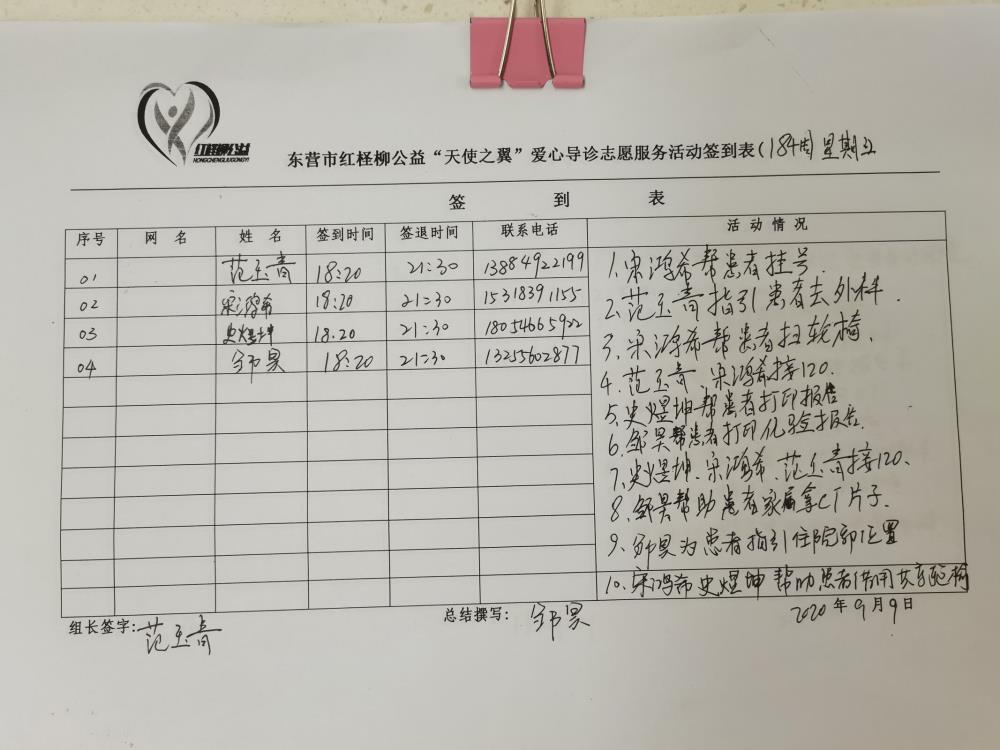 红柽柳公益
HONGCHENGLIUGONGYI
东营市红柽柳公益“天使之翼”爱心导诊志愿服务活动签到表(184周星期五
签 到 表
序号 网 名 姓 名 签到时间 签退时间 联系电话 活动情况
01 范玉青 18:20 21:30 13884922199
02 宋鸿希 18:20 21:30 15318391155
03 史煜坤 18.20 21:30 18054665922
04 邹昊 18:20 21:30 13255602877
1.宋鸿希帮患者挂号.
2.范玉青指引患者去外科.
3.宋鸿希帮患者扫轮椅.
4.范玉青 宋鸿希接120.
5.史煜坤帮患者打印报告
6.邹昊帮患者打印化验报告.
7.史煜坤.宋鸿希.范玉青接120.
8.邹昊帮助患者家属拿CT片子.
9.邹昊为患者指引住院部位置
10.宋鸿希史煜坤帮助患者借用共享轮椅
组长签字:范玉青
总结撰写: 邹昊
2020年9月9日